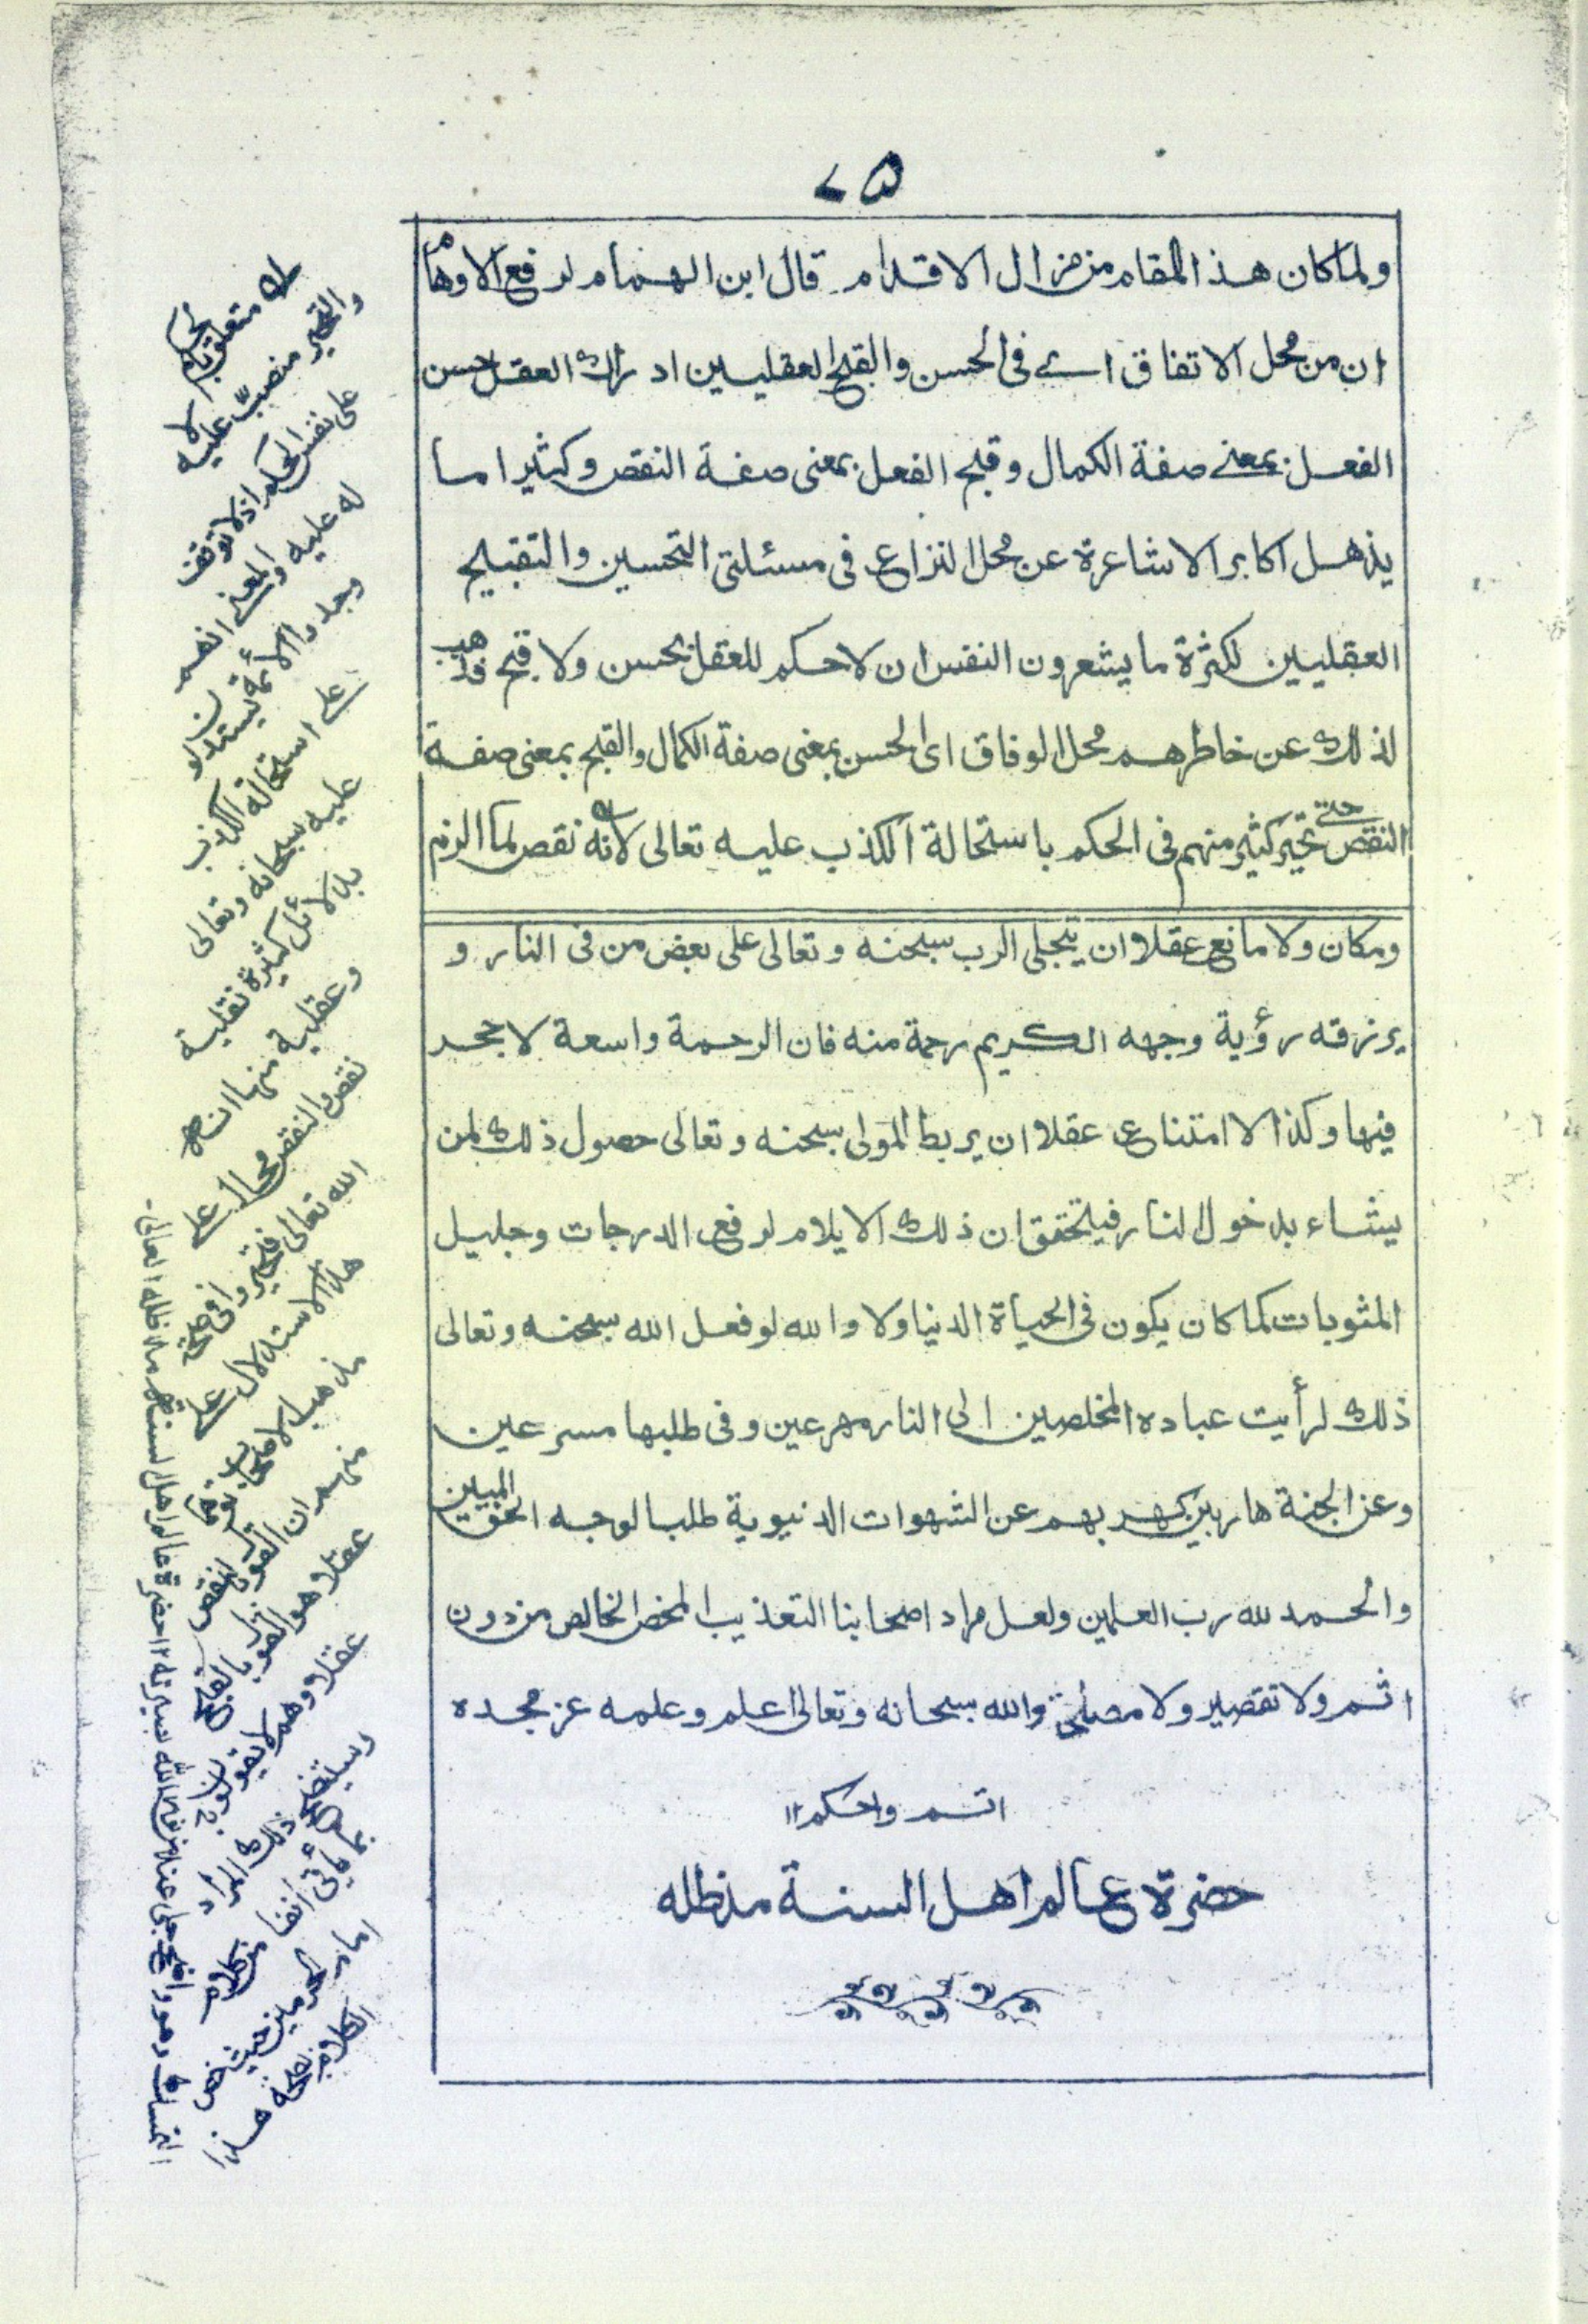 ٧٥
ولما كان هذا المقام من مزال الاقدام قال ابن الهمام لرفع الاوهام
ان من محل الاتفاق اے فی الحسن والقبح العقليين ادراك العقل حسن
الفعل بمعنے صفة الكمال وقبح الفعل بمعنى صفة النقص وكثيرا ما
يذهل اكابر الاشاعرة عن محل النزاع فى مسئلتى التحسين والتقبيح
العقليين لكثرة ما يشعرون النفس ان لا حكم للعقل بحسن ولا قبح فذهب
لذلك عن خاطرهم محل الوفاق اى الحسن بمعنى صفة الكمال والقبح بمعنى صفة
النقص حتے تحير كثير منهم فى الحكم باستحالة الكذب عليه تعالى لانه نقص لما الزم
ومكان ولا مانع عقلا ان يتجلى الرب سبحنه وتعالى على بعض من فى النار و
يرزقه رؤية وجهه الكريم رحمة منه فان الرحمة واسعة لا حجر
فيها وكذا لا امتناع عقلا ان يربط المولى سبحنه وتعالى حصول ذلك لمن
يشاء بدخول النار فيتحقق ان ذلك الايلام لرفع الدرجات وجليل
المثوبات كما كان يكون فى الحياة الدنيا ولا والله لو فعل الله سبحنه وتعالى
ذلك لرأيت عباده المخلصين الى النار مهرعين وفى طلبها مسرعين
وعن الجنة هاربين كهربهم عن الشهوات الدنيوية طلبا لوجه الحق المبين
والحمد لله رب العلمين ولعل مراد اصحابنا التعذيب المحض الخالص من دون
اثم ولا تقصير ولا مصلحة والله سبحانه وتعالى اعلم وعلمه عز مجده
اتم واحكم ١٢
حضرة عالم اهل السنة مد ظله
له متعلق بالحكم
والتحير منصبّ عليه لا
على نفس الحكم اذ لا توقف
له عليه والمعنے انهم
وجدوا الائمة يستدلون
علے استحالة الكذب
عليه سبحانه وتعالى
بدلائل كثيرة نقلية
وعقلية منها انه
نقص والنقص محال علے
الله تعالى فتحيروا فى صحة
هذا الاستدلال علے
مذهب الاصحاب توهما
منهم ان القول بالنقص
عقلا هو القول بالقبح
عقلا وهم لا يقولون به
الكلام هذا